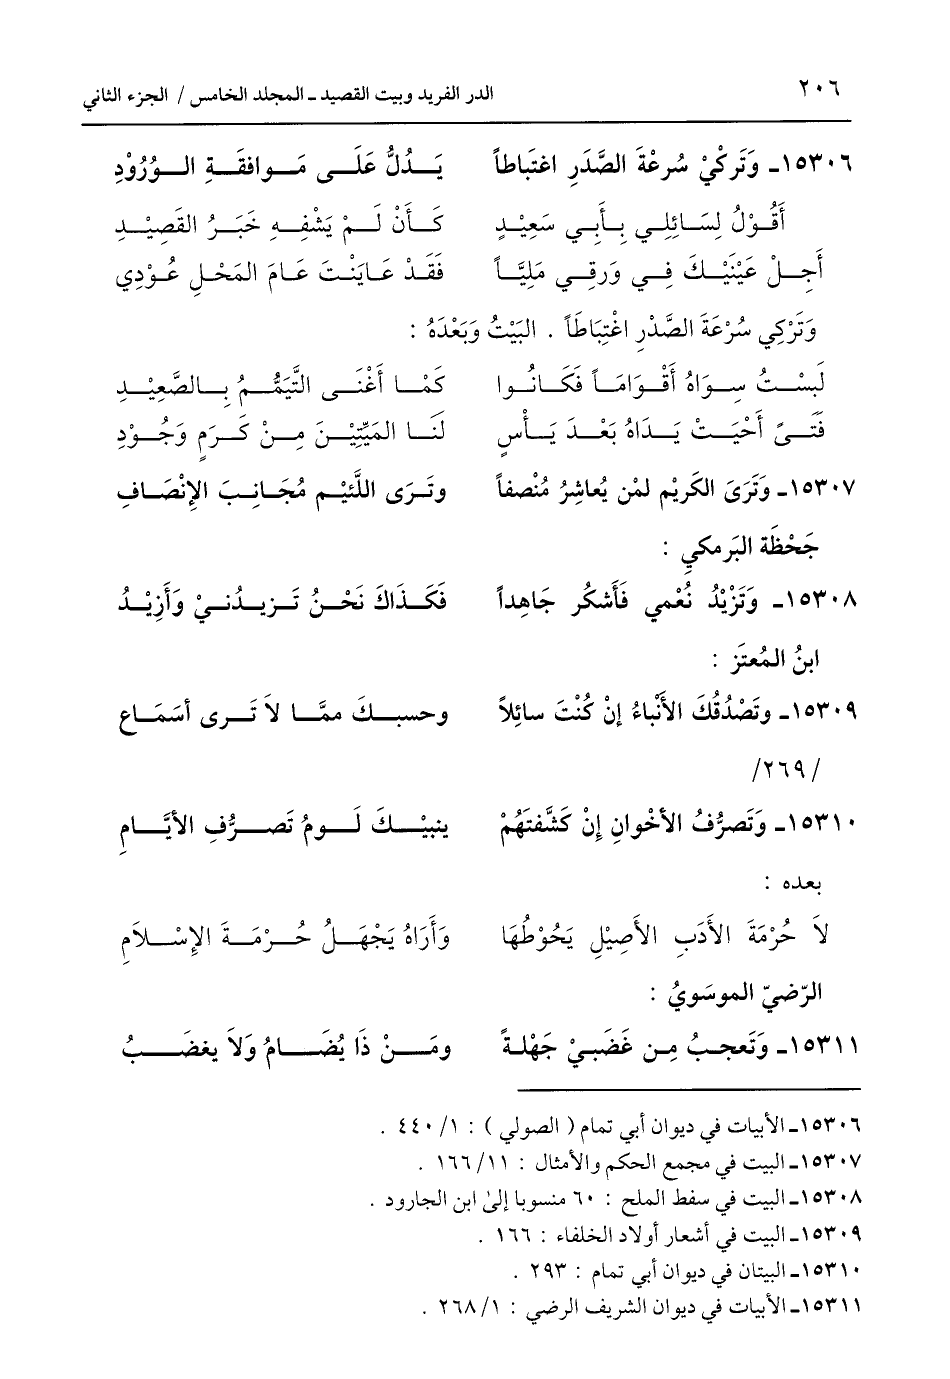 ٢٠٦ الدر الفريد وبيت القصيد ـ المجلد الخامس / الجزء الثاني
١٥٣٠٦ـ وَتَركْيْ سُرعْةَ الصَّدَرِ اغتَباطاً يَدُلُّ عَلَى مَوافقَةِ الورُوْدِ
أَقُوْلُ لِسَائِلِي بِأَبِي سَعِيْدٍ كَأَنْ لَمْ يَشْفِهِ خَبَرُ القَصِيْدِ
أَجِلْ عَيْنَيْكَ فِي وَرقِي مَلِيَّاً فَقَدْ عَايَنْتَ عَامَ المَحْلِ عُوْدِي
وَتَرْكِي سُرْعَةَ الصَّدْرِ اغْتِبَاطَاً . البَيْتُ وَبَعْدَهُ :
لَبِسْتُ سِوَاهُ أَقْوَامَاً فَكَانُوا كَمَا أَغْنَى التَّيَمُّمُ بِالصَّعِيْدِ
فَتَىً أَحْيَتْ يَدَاهُ بَعْدَ يَأْسٍ لَنَا المَيِّتِيْنَ مِنْ كَرَمٍ وَجُوْدِ
١٥٣٠٧ـ وَتَرَىَ الكَرِيْم لمْن يُعاشِرُ مُنْصفاً وتَرَى اللَّئيْم مُجَانبَ الإنْصَافِ
جَحْظَة البَرمكيِ :
١٥٣٠٨ـ وَتَزيْدُ نعُمْي فَأشكُر جَاهِداً فكَذَاكَ نَحْنُ تزيدُنيْ وَأَزِيْدُ
ابنُ المُعتَز :
١٥٣٠٩ـ وتَصْدُقُكَ الأَنْباءُ إنْ كُنْتَ سائِلاً وحسبكَ ممَّا لاَ تَرى أسَمَاعِ
/٢٦٩/
١٥٣١٠ـ وَتَصرُّفُ الأخْوانِ إنْ كَشَّفتَهُمْ ينبيْكَ لَومُ تَصرُّفِ الأيَّامِ
بعده :
لاَ حُرْمَةَ الأَدَبِ الأَصِيْلِ يَحُوْطُهَا وَأَرَاهُ يَجْهَلُ حُرْمَةَ الإِسْلَامِ
الرّضيّ الموسَويُ :
١٥٣١١ـ وَتَعجبُ مِن غَضَبيْ جَهْلةً ومَنْ ذَا يُضَامُ وَلاَ يغضَبُ
١٥٣٠٦ـ الأبيات في ديوان أبي تمام ( الصولي ) : ٤٤٠/١ .
١٥٣٠٧ـ البيت في مجمع الحكم والأمثال : ١٦٦/١١ .
١٥٣٠٨ـ البيت في سفط الملح : ٦٠ منسوبا إلى ابن الجارود .
١٥٣٠٩ـ البيت في أشعار أولاد الخلفاء : ١٦٦ .
١٥٣١٠ـ البيتان في ديوان أبي تمام : ٢٩٣ .
١٥٣١١ـ الأبيات في ديوان الشريف الرضي : ٢٦٨/١ .